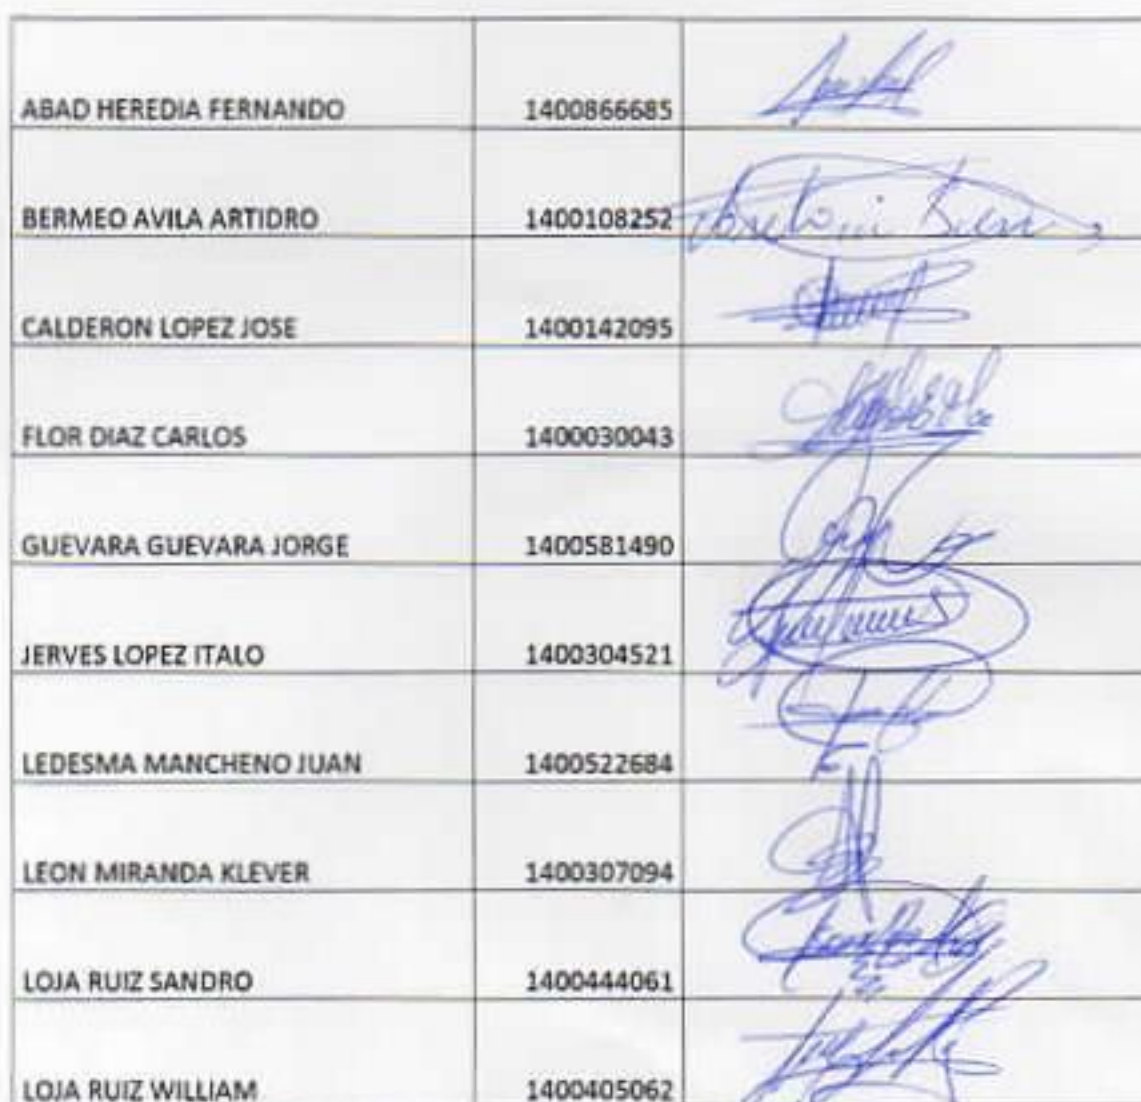 ABAD HEREDIA FERNANDO 1400866685
BERMEO AVILA ARTIDRO 1400108252
CALDERON LOPEZ JOSE 1400142095
FLOR DIAZ CARLOS 1400030043
GUEVARA GUEVARA JORGE 1400581490
JERVES LOPEZ ITALO 1400304521
LEDESMA MANCHENO JUAN 1400522684
LEON MIRANDA KLEVER 1400307094
LOJA RUIZ SANDRO 1400444061
LOJA RUIZ WILLIAM 1400405062